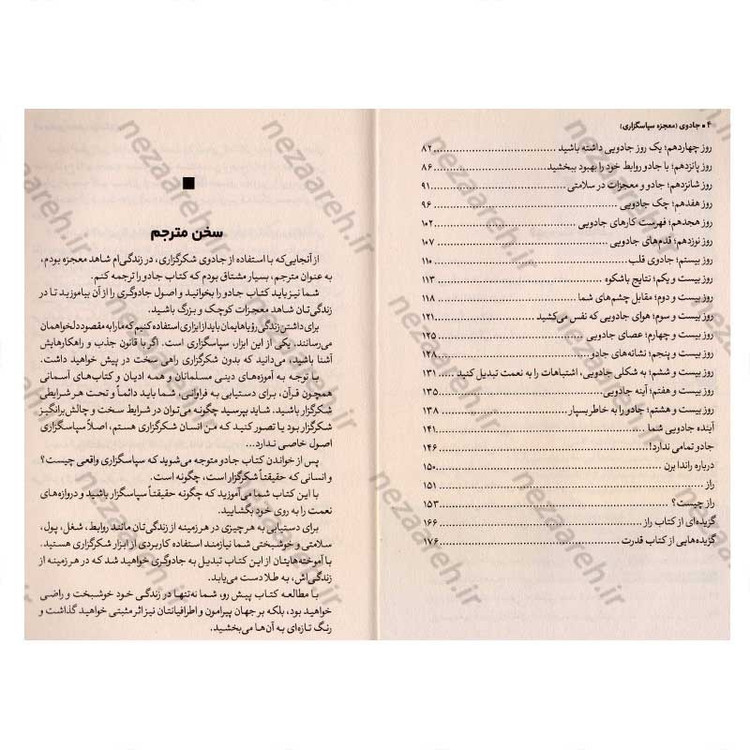 ۴ ▪ جادوی (معجزه سپاسگزاری)
روز چهاردهم؛ یک روز جادویی داشته باشید ... ۸۲
روز پانزدهم؛ با جادو روابط خود را بهبود ببخشید ... ۸۶
روز شانزدهم؛ جادو و معجزات در سلامتی ... ۹۱
روز هفدهم؛ چک جادویی ... ۹۶
روز هجدهم؛ فهرست کارهای جادویی ... ۱۰۲
روز نوزدهم؛ قدم‌های جادویی ... ۱۰۷
روز بیستم؛ جادوی قلب ... ۱۱۰
روز بیست و یکم؛ نتایج باشکوه ... ۱۱۳
روز بیست و دوم؛ مقابل چشم‌های شما ... ۱۱۸
روز بیست و سوم؛ هوای جادویی که نفس می‌کشید ... ۱۲۱
روز بیست و چهارم؛ عصای جادویی ... ۱۲۵
روز بیست و پنجم؛ نشانه‌های جادو ... ۱۲۸
روز بیست و ششم؛ به شکلی جادویی، اشتباهات را به نعمت تبدیل کنید ... ۱۳۱
روز بیست و هفتم؛ آینه جادویی ... ۱۳۵
روز بیست و هشتم؛ جادو را به خاطر بسپار ... ۱۳۸
آینده جادویی شما ... ۱۴۱
جادو تمامی ندارد! ... ۱۴۶
درباره راندا برن ... ۱۵۰
راز ... ۱۵۱
راز چیست؟ ... ۱۵۳
گزیده‌ای از کتاب راز ... ۱۶۶
گزیده‌هایی از کتاب قدرت ... ۱۷۶
سخن مترجم
از آنجایی‌که با استفاده از جادوی شکرگزاری، در زندگی‌ام شاهد معجزه بودم،
به عنوان مترجم، بسیار مشتاق بودم که کتاب جادو را ترجمه کنم.
شما نیز باید کتاب جادو را بخوانید و اصول جادوگری را از آن بیاموزید تا در
زندگی‌تان شاهد معجزات کوچک و بزرگ باشید.
برای داشتن زندگی رؤیاهایمان باید از ابزاری استفاده کنیم که ما را به مقصود دلخواهمان
می‌رسانند. یکی از این ابزار، سپاسگزاری است. اگر با قانون جذب و راهکارهایش
آشنا باشید، می‌دانید که بدون شکرگزاری راهی سخت در پیش خواهید داشت.
با توجه به آموزه‌های دینی مسلمانان و همه ادیان و کتاب‌های آسمانی
همچون قرآن، برای دستیابی به فراوانی، شما باید دائماً و تحت هر شرایطی
شکرگزار باشید. شاید بپرسید چگونه می‌توان در شرایط سخت و چالش‌برانگیز
شکرگزار بود یا تصور کنید که من انسان شکرگزاری هستم، اصلاً سپاسگزاری
اصول خاصی ندارد...
پس از خواندن کتاب جادو متوجه می‌شوید که سپاسگزاری واقعی چیست؟
و انسانی که حقیقتاً شکرگزار است، چگونه است.
با این کتاب شما می‌آموزید که چگونه حقیقتاً سپاسگزار باشید و دروازه‌های
نعمت را به روی خود بگشایید.
برای دستیابی به هر چیزی در هر زمینه از زندگی‌تان مانند روابط، شغل، پول،
سلامتی و خوشبختی شما نیازمند استفاده کاربردی از ابزار شکرگزاری هستید.
با آموخته‌هایتان از این کتاب تبدیل به جادوگری خواهید شد که در هر زمینه از
زندگی‌اش، به طلا دست می‌یابد.
با مطالعه کتاب پیش رو، شما نه‌تنها در زندگی خود خوشبخت و راضی
خواهید بود، بلکه بر جهان پیرامون و اطرافیانتان نیز اثر مثبتی خواهید گذاشت و
رنگ تازه‌ای به آن‌ها می‌بخشید.
nezaareh.ir
nezaareh.ir
nezaareh.ir
nezaareh.ir
nezaareh.ir
nezaareh.ir
nezaareh.ir
nezaareh.ir